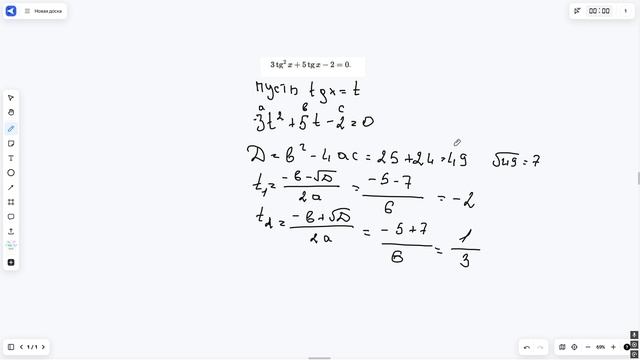 Новая доска
00:00
1
3 tg² x + 5 tg x − 2 = 0.
пусть tgx = t
a b c
3t² + 5t − 2 = 0
D = b² − 4ac = 25 + 24 = 49 √49 = 7
t₁ = (−b − √D)/2a = (−5 − 7)/6 = −2
t₂ = (−b + √D)/2a = (−5 + 7)/6 = 1/3
1 / 1
69%